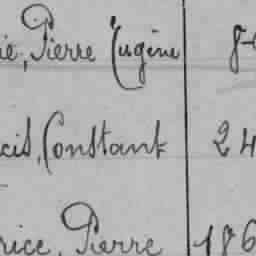 ie, Pierre Eugène 8
cis, Constant 24
rice, Pierre 186